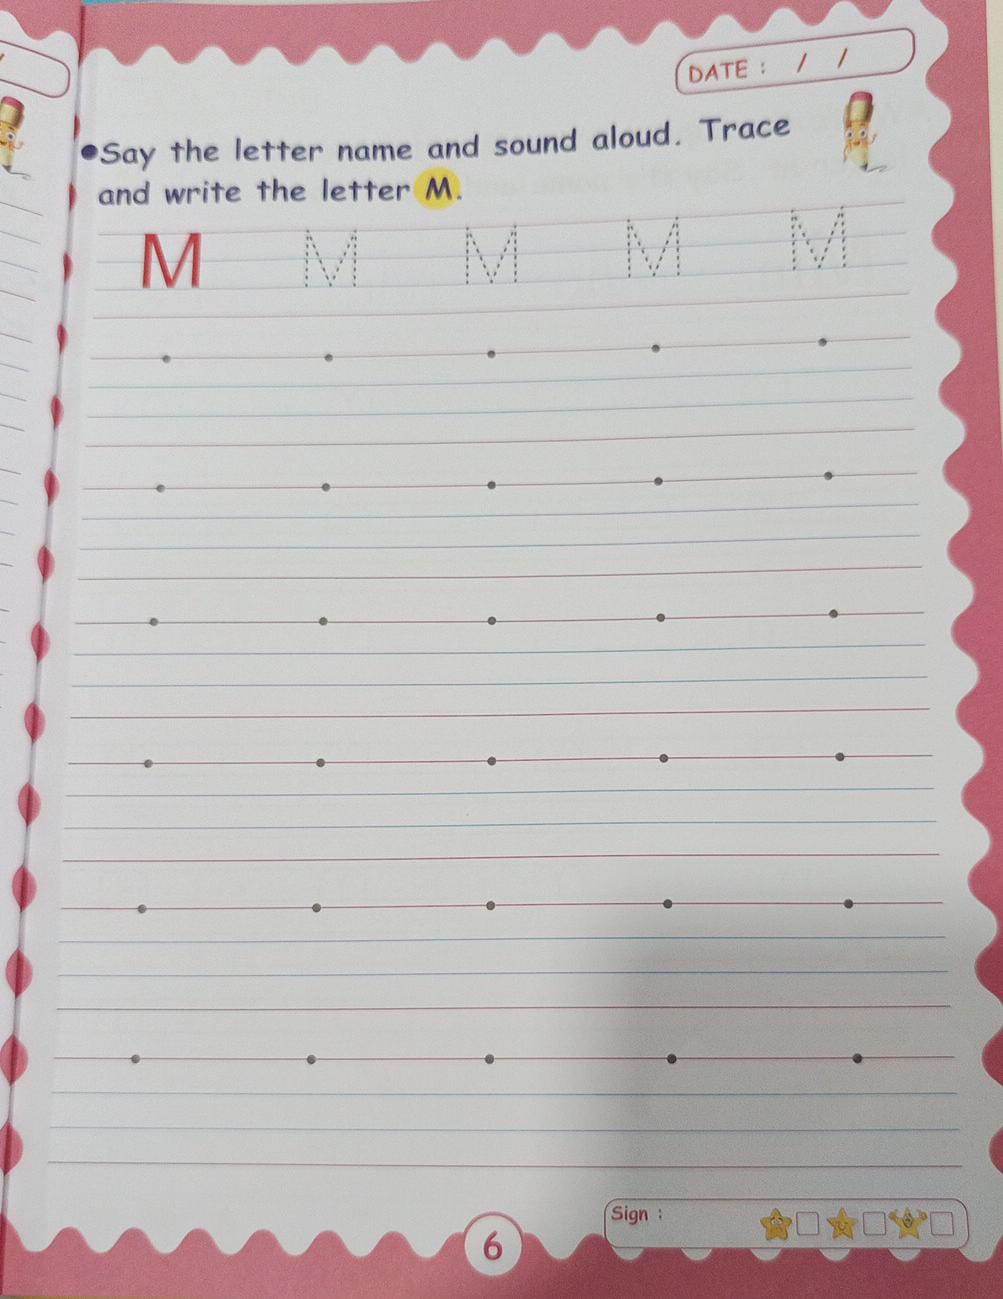 DATE : / /
•Say the letter name and sound aloud. Trace
and write the letter M.
M M M M M
Sign :
6